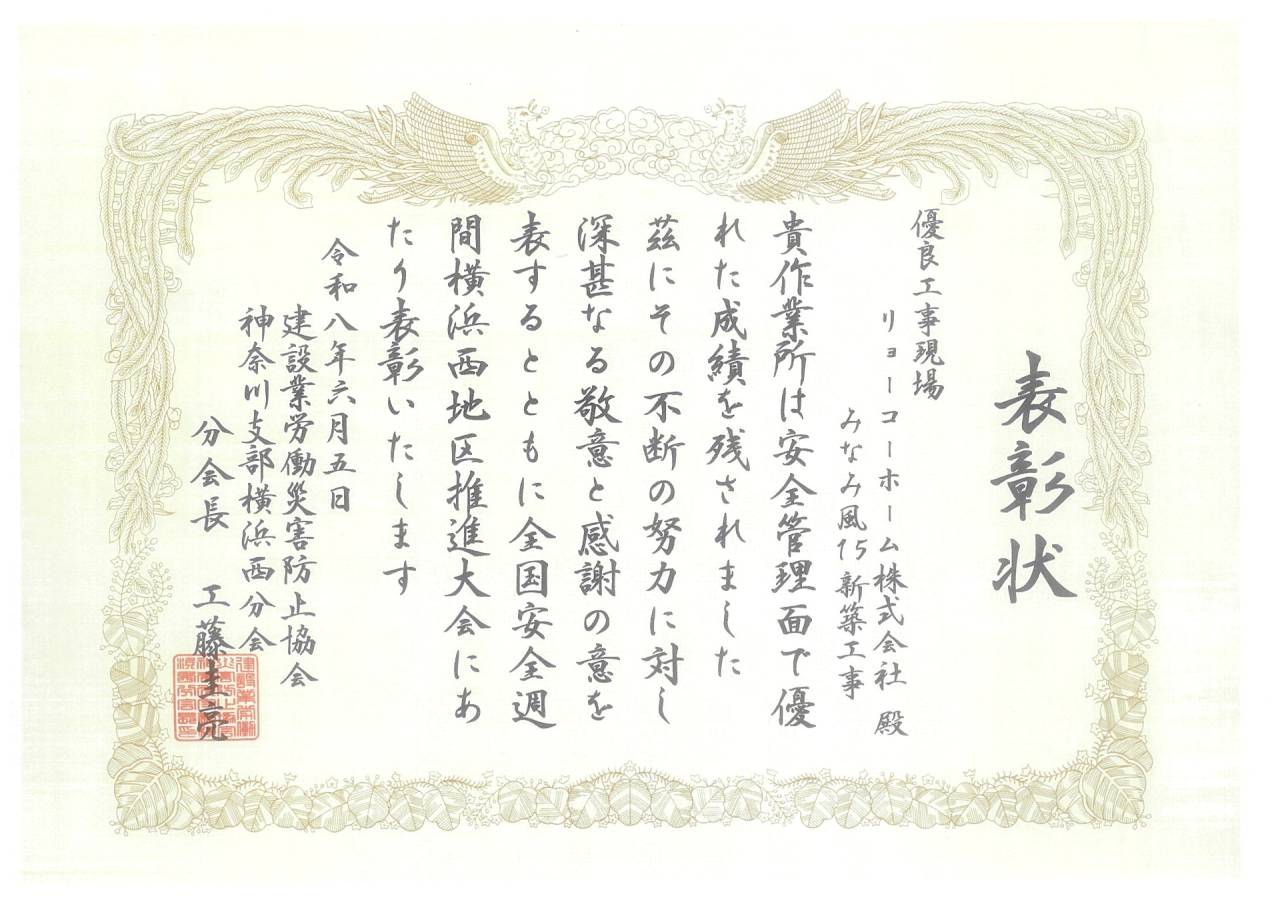 表彰状
優良工事現場
リョーコーホーム株式会社 殿
みなみ風15新築工事
貴作業所は安全管理面で優
れた成績を残されました
茲にその不断の努力に対し
深甚なる敬意と感謝の意を
表するとともに全国安全週
間横浜西地区推進大会にあ
たり表彰いたします
令和八年六月五日
建設業労働災害防止協会
神奈川支部横浜西分会
分会長 工藤圭亮